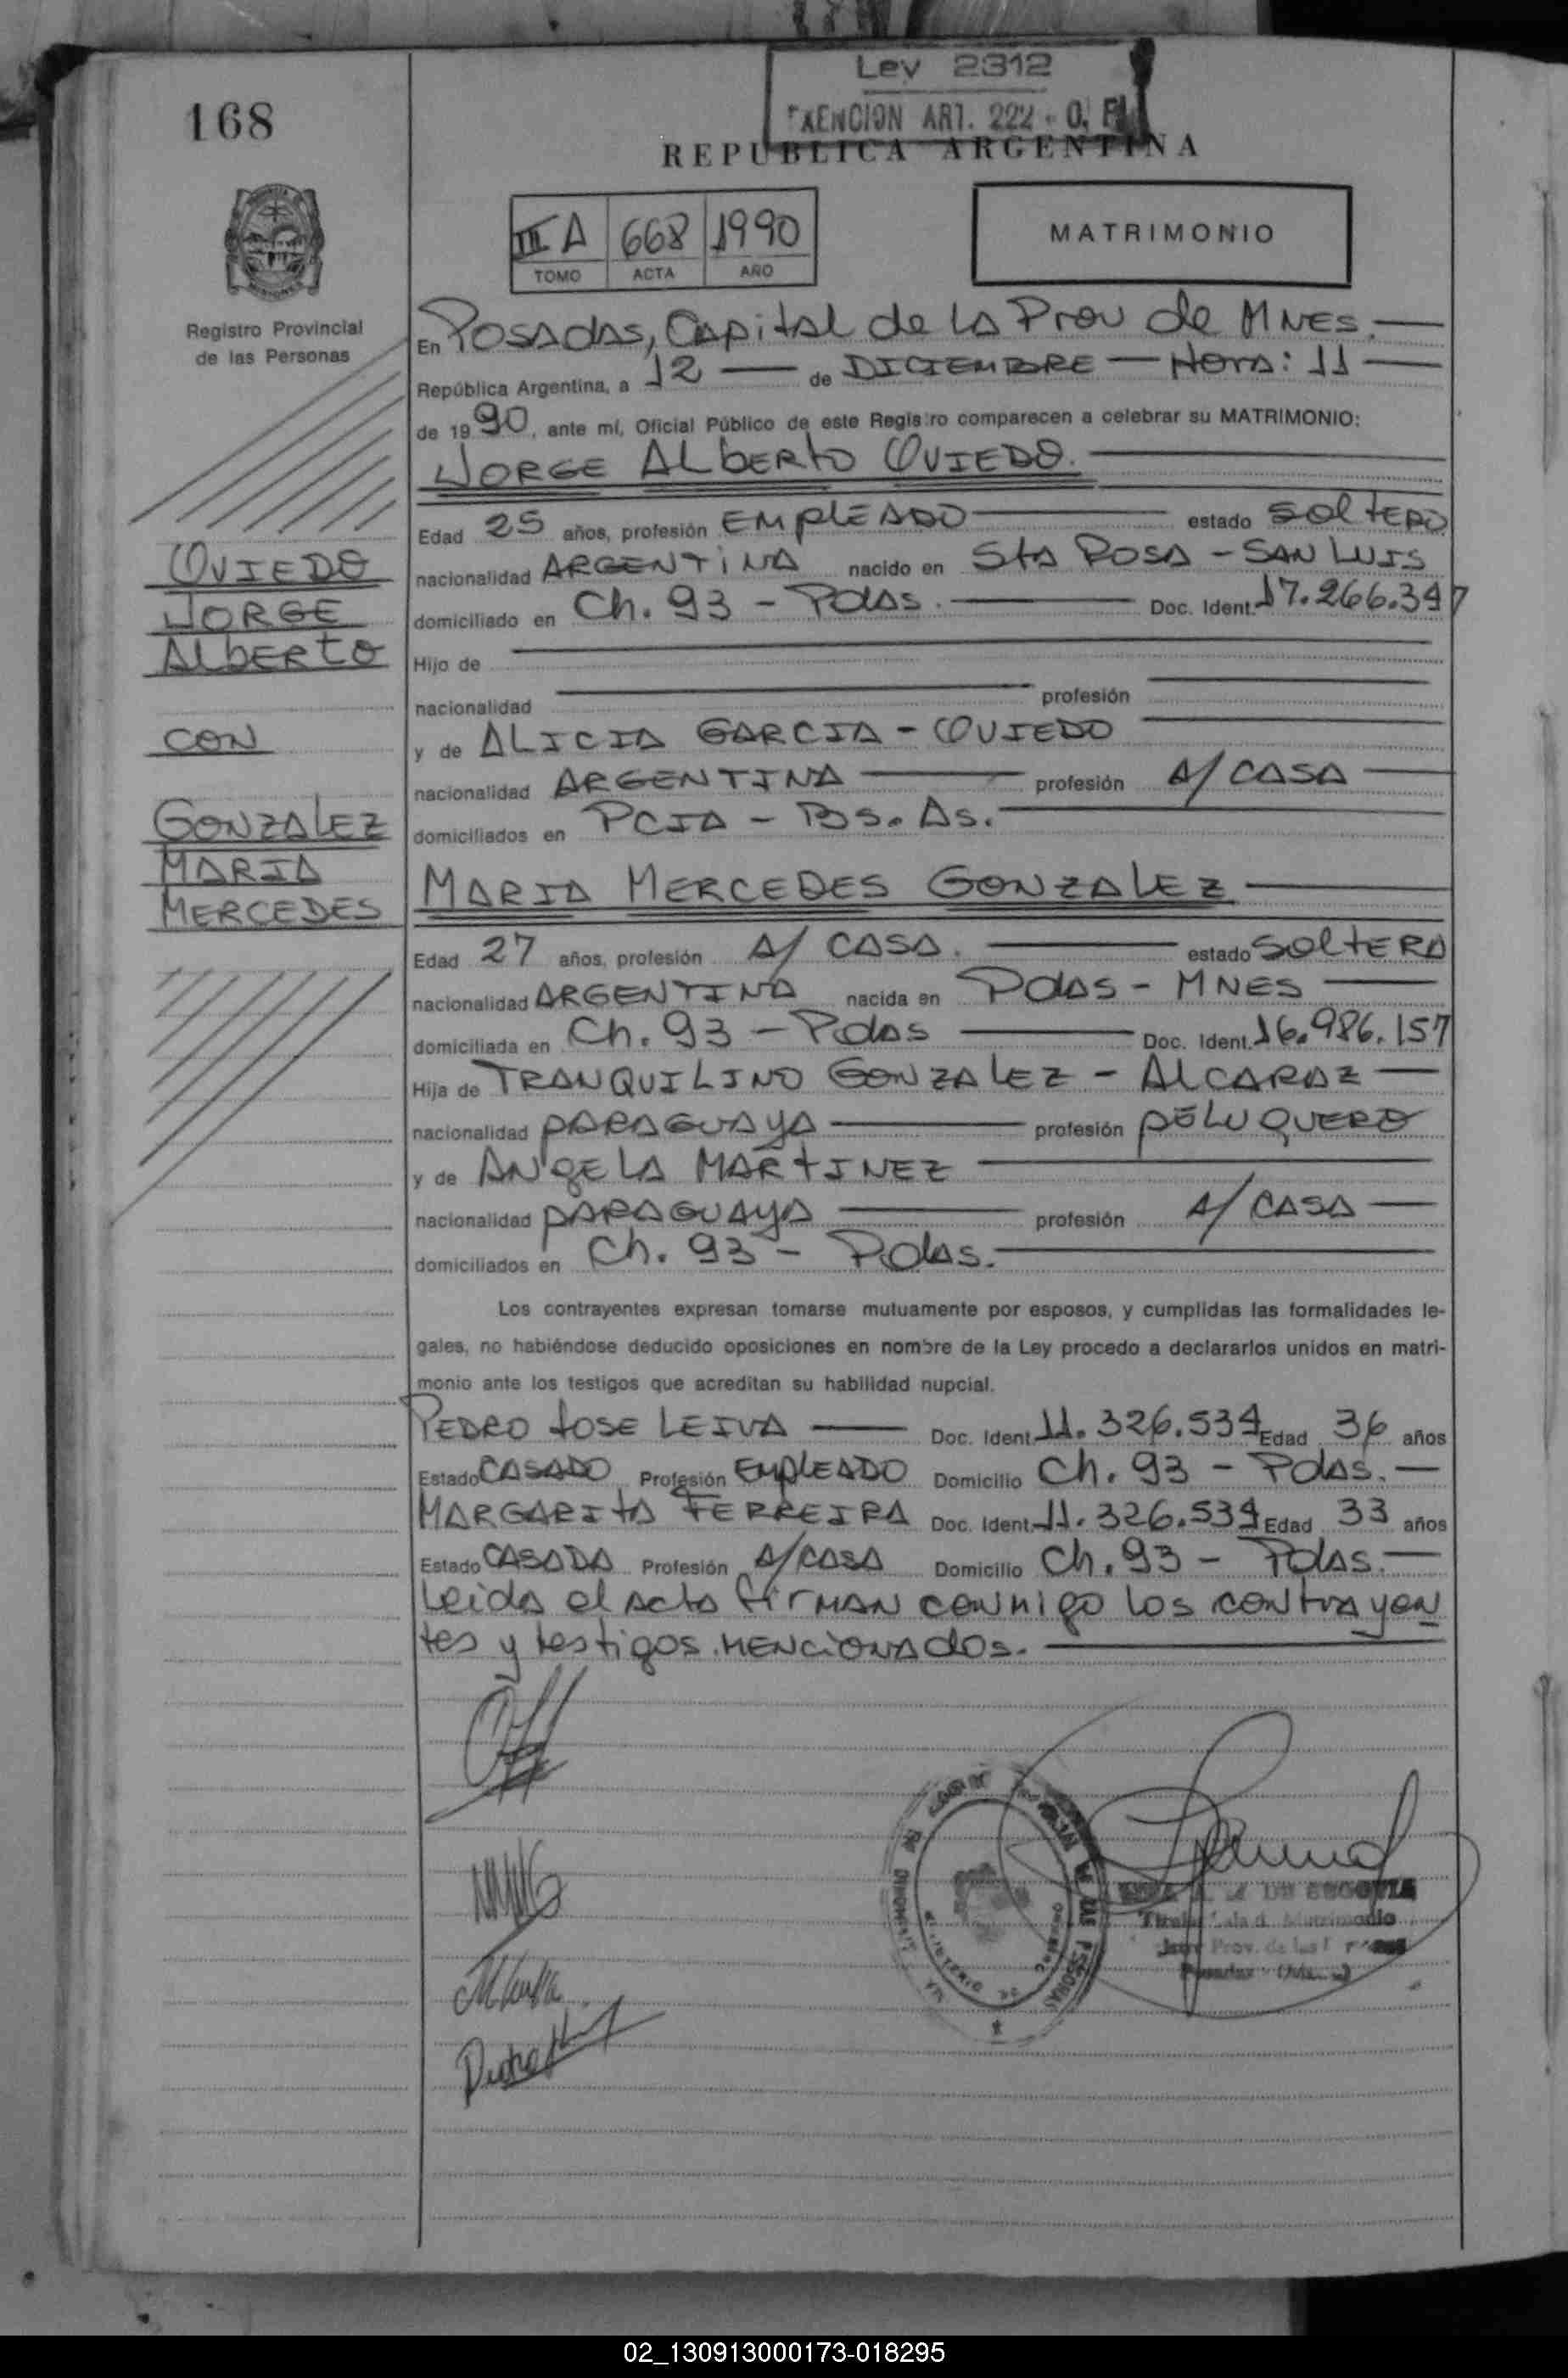 168
Ley 2312
EXENCION ART. 222 - O. F.
REPUBLICA ARGENTINA
III A 668 1990
TOMO ACTA AÑO
MATRIMONIO
Registro Provincial
de las Personas
En Posadas, Capital de la Prov de MNES.
República Argentina, a 12 de DICIEMBRE Hora: 11
de 1990, ante mí, Oficial Público de este Registro comparecen a celebrar su MATRIMONIO:
JORGE ALBERTO OVIEDO.
Edad 25 años, profesión EMPLEADO estado SOLTERO
nacionalidad ARGENTINA nacido en STA ROSA - SAN LUIS
domiciliado en Ch. 93 - Pdas. Doc. Ident. 17.266.347
Hijo de
nacionalidad profesión
y de ALICIA GARCIA - OVIEDO
nacionalidad ARGENTINA profesión A/ CASA
domiciliados en PCIA - Bs. As.
OVIEDO
JORGE
ALBERTO
CON
GONZALEZ
MARIA
MERCEDES
MARIA MERCEDES GONZALEZ
Edad 27 años, profesión A/ CASA. estado SOLTERA
nacionalidad ARGENTINA nacida en Pdas - MNES
domiciliada en Ch. 93 - Pdas Doc. Ident. 16.986.157
Hija de TRANQUILINO GONZALEZ - ALCARAZ
nacionalidad PARAGUAYA profesión PELUQUERO
y de ANGELA MARTINEZ
nacionalidad PARAGUAYA profesión A/ CASA
domiciliados en Ch. 93 - Pdas.
Los contrayentes expresan tomarse mutuamente por esposos, y cumplidas las formalidades le-
gales, no habiéndose deducido oposiciones en nombre de la Ley procedo a declararlos unidos en matri-
monio ante los testigos que acreditan su habilidad nupcial.
PEDRO JOSE LEIVA Doc. Ident. 11.326.534 Edad 36 años
Estado CASADO Profesión EMPLEADO Domicilio Ch. 93 - Pdas.
MARGARITA FERREIRA Doc. Ident. 11.326.534 Edad 33 años
Estado CASADA Profesión A/CASA Domicilio Ch. 93 - Pdas.
Leida el acta firman conmigo los contrayen
tes y testigos mencionados.
DE SEGOVIA
Matrimonio
Prov. de las
Posadas
02_130913000173-018295